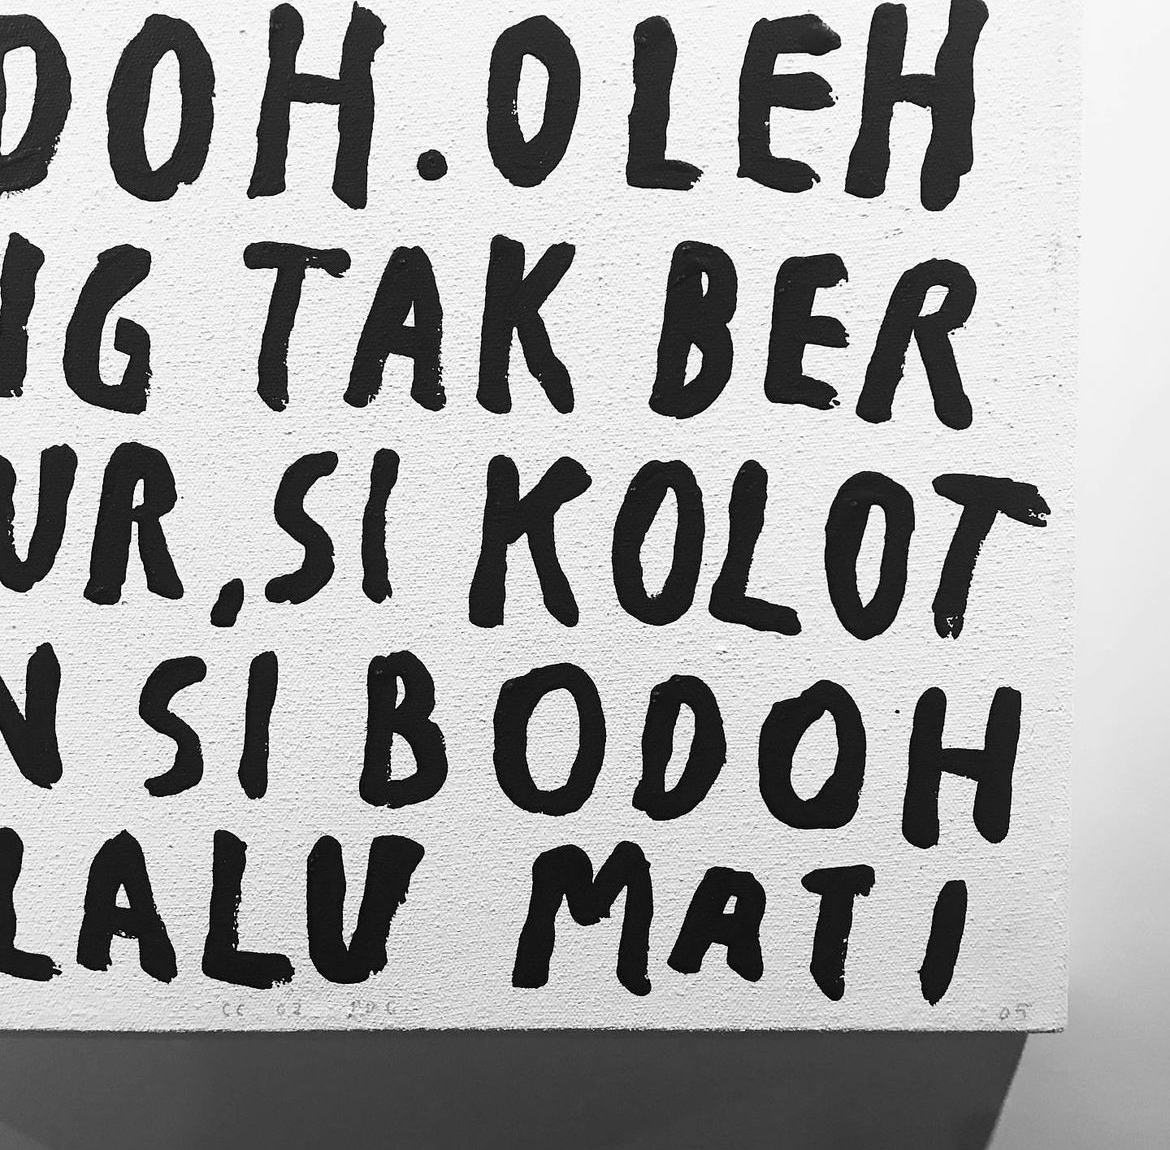 DOH. OLEH
NG TAK BER
UR, SI KOLOT
N SI BODOH
LALU MATI
05